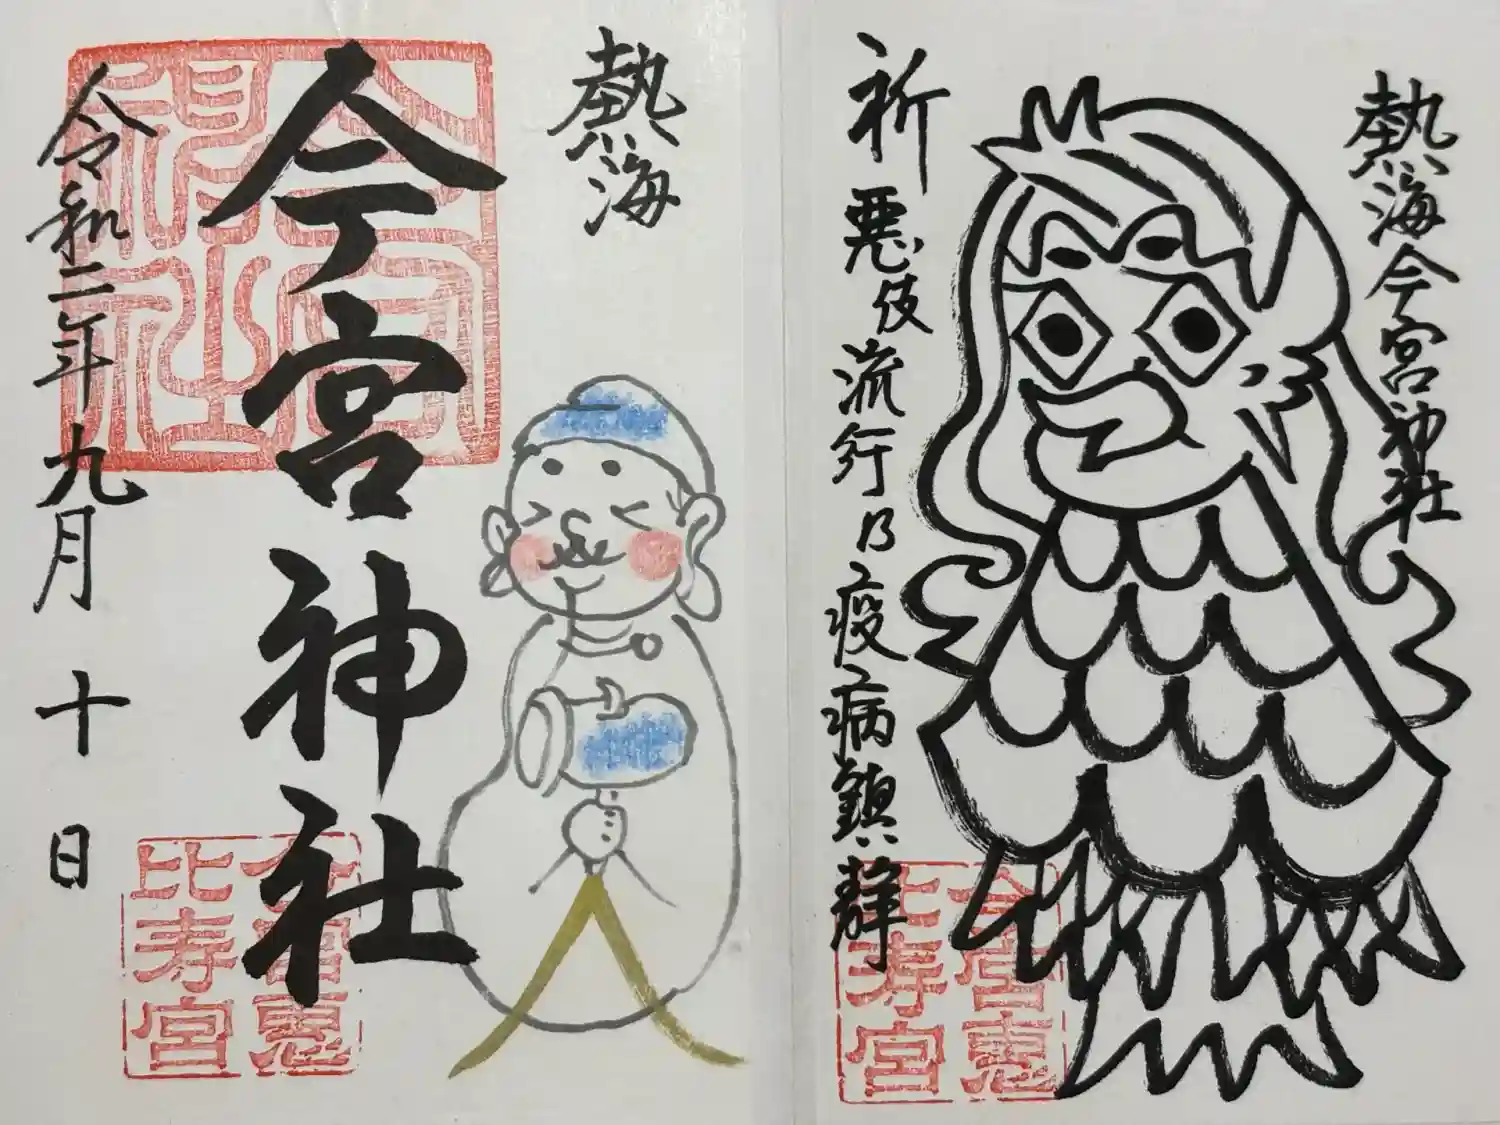 熱海
今宮神社
令和二年九月十日
今宮神社
今宮恵
比寿宮
熱海今宮神社
祈 悪伎流行乃疫病鎮静
今宮恵
比寿宮